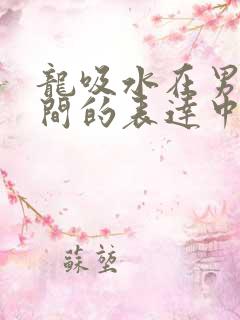 龍吸水在男
間的表達中
蘇塹